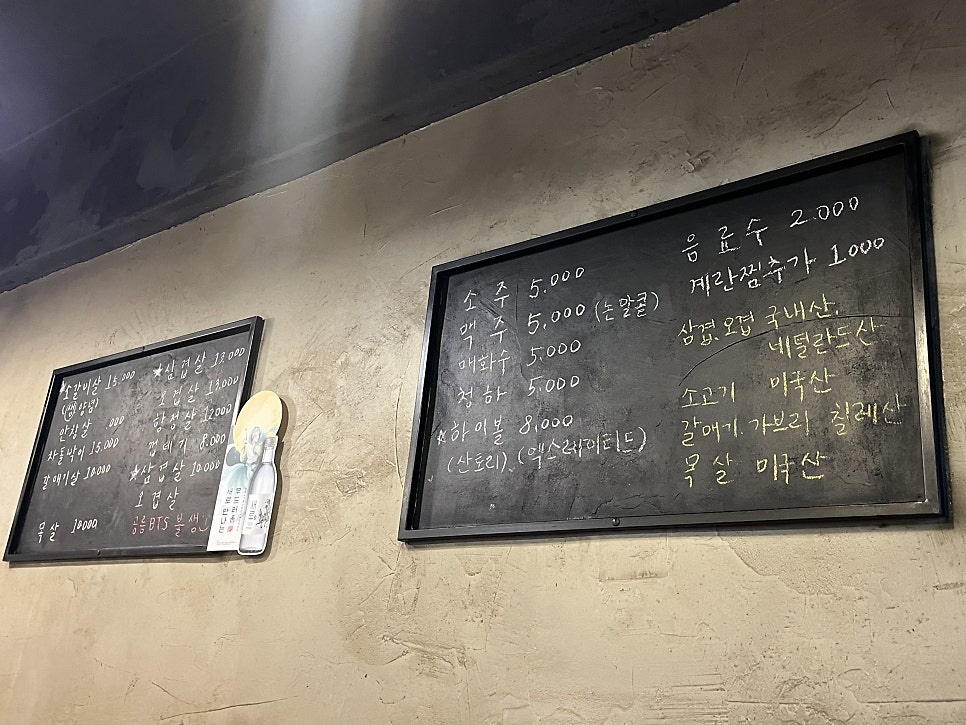 소갈비살 15.000
(쌩, 양념)
안창살 000
차돌박이 15.000
갈매기살 10.000
목살 10000
★삼겹살 13.000
오겹살 13.000
항정살 12000
껍데기 8.000
★삼겹살 10.000
오겹살
BTS
소주 5.000
맥주 5.000 (논알콜)
매화수 5.000
청하 5.000
☆하이볼 8,000
(산토리), (엑스레이티드)
음료수 2.000
계란찜추가 1.000
삼겹.오겹 국내산,
네덜란드산
소고기 미국산
갈매기.가브리 칠레산
목살 미국산